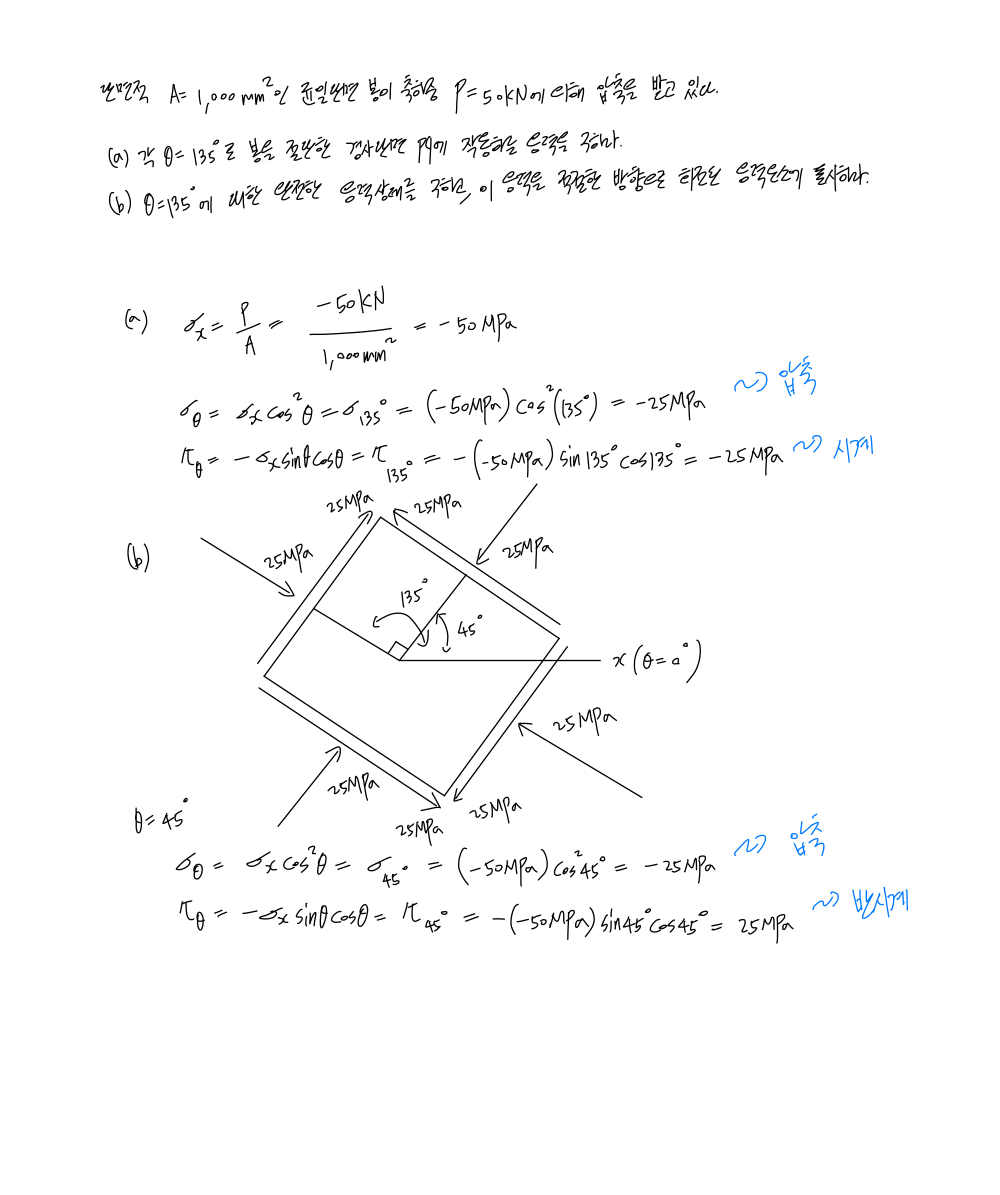 단면적 A= 1,000mm²인 균일단면 봉이 축하중 P=50kN에 의해 압축을 받고 있다.
(a) 각 θ=135°로 봉을 절단한 경사단면 pq에 작용하는 응력을 구하라.
(b) θ=135°에 대한 완전한 응력상태를 구하고, 이 응력을 적절한 방향으로 회전된 응력요소에 표시하라.
(a) σx = P/A = -50kN/1,000mm² = -50MPa
σθ = σx cos²θ = σ135° = (-50MPa) cos²(135°) = -25MPa ~> 압축
τθ = -σx sinθcosθ = τ135° = -(-50MPa) sin135°cos135° = -25MPa ~> 시계
25MPa 25MPa
(b) 25MPa 25MPa
135° 45°
x(θ=0°)
25MPa
25MPa 25MPa
25MPa
θ=45°
σθ = σx cos²θ = σ45° = (-50MPa) cos²45° = -25MPa ~> 압축
τθ = -σx sinθcosθ = τ45° = -(-50MPa) sin45°cos45° = 25MPa ~> 반시계